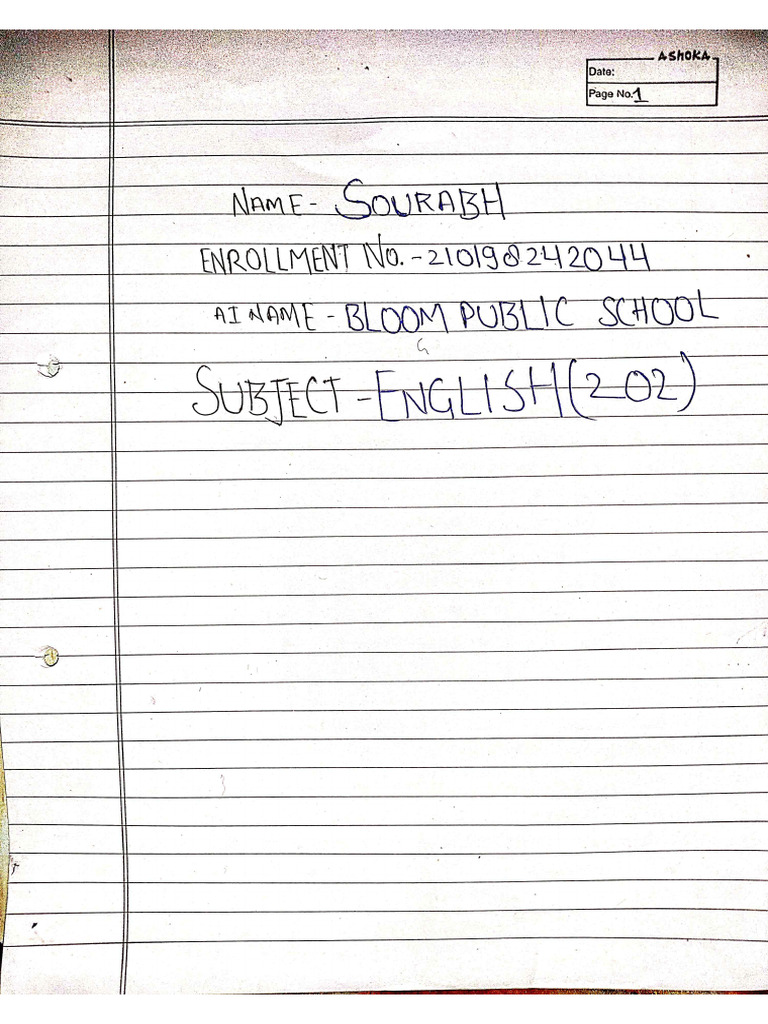 ASHOKA
Date:
Page No. 1
NAME - SOURABH
ENROLLMENT No. - 210198242044
AI NAME - BLOOM PUBLIC SCHOOL
SUBJECT - ENGLISH (202)